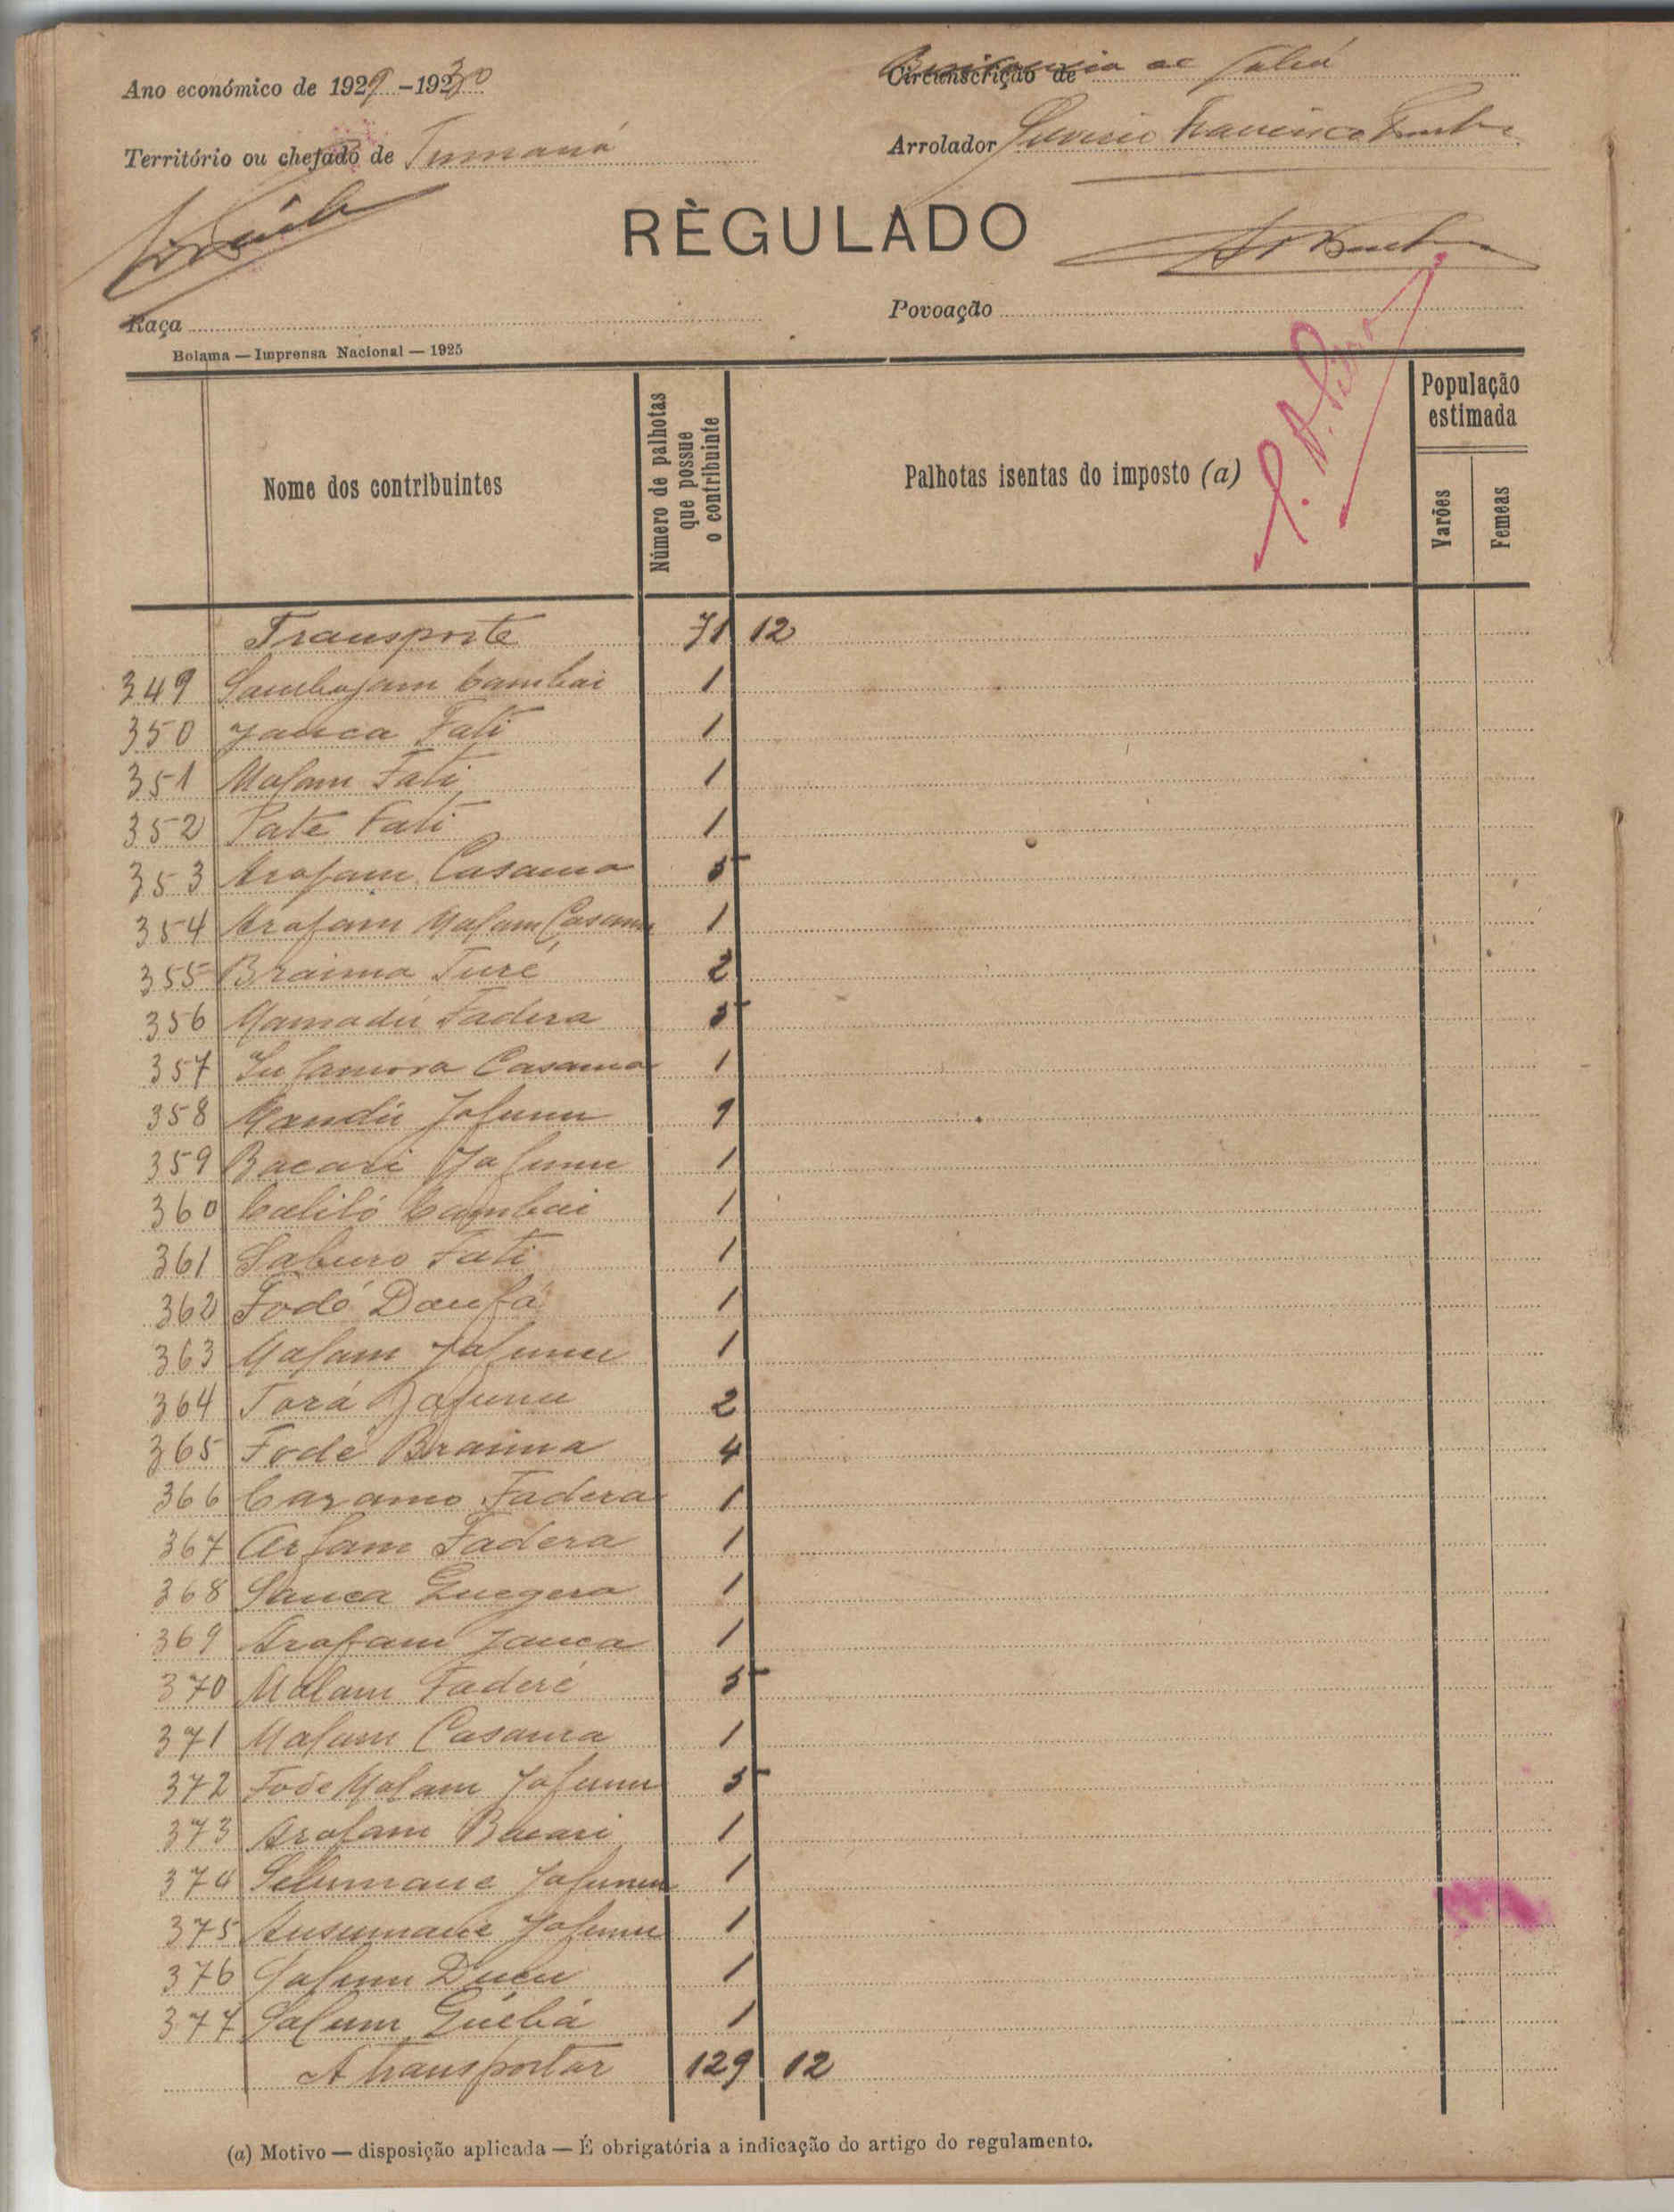 Ano económico de 1929-1930
Circunscrição de
Território ou chefado de Tumaná
Arrolador Francisco
RÈGULADO
Raça
Povoação
Bolama — Imprensa Nacional — 1925
Nome dos contribuintes
Número de palhotas que possue o contribuinte
Palhotas isentas do imposto (a)
População estimada
Varões
Femeas
Transporte 71 12
349 Cambai 1
350 Janca Fati 1
351 Malam Fati 1
352 Pate Fati 1
353 Arafam Casama 5
354 Arafam Malam Casama 1
355 Braima Turé 2
356 Mamadú Fadera 5
357 Casama 1
358 Mandú Jafunu 9
359 Bacari Jafunu 1
360 Caliló Cambai 1
361 Fati 1
362 Fodé Danfá 1
363 Malam Jafunu 1
364 Torá Jafunu 2
365 Fodé Braima 4
366 Caramo Fadera 1
367 Arfam Fadera 1
368 Sanca 1
369 Arafam Janca 1
370 Malam Faderé 5
371 Malam Casama 1
372 Fode Malam Jafunu 5
373 Arafam Bacari 1
374 Selumane Jafunu 1
375 Ansumane Jafunu 1
376 1
377 1
A transportar 129 12
(a) Motivo — disposição aplicada — É obrigatória a indicação do artigo do regulamento.